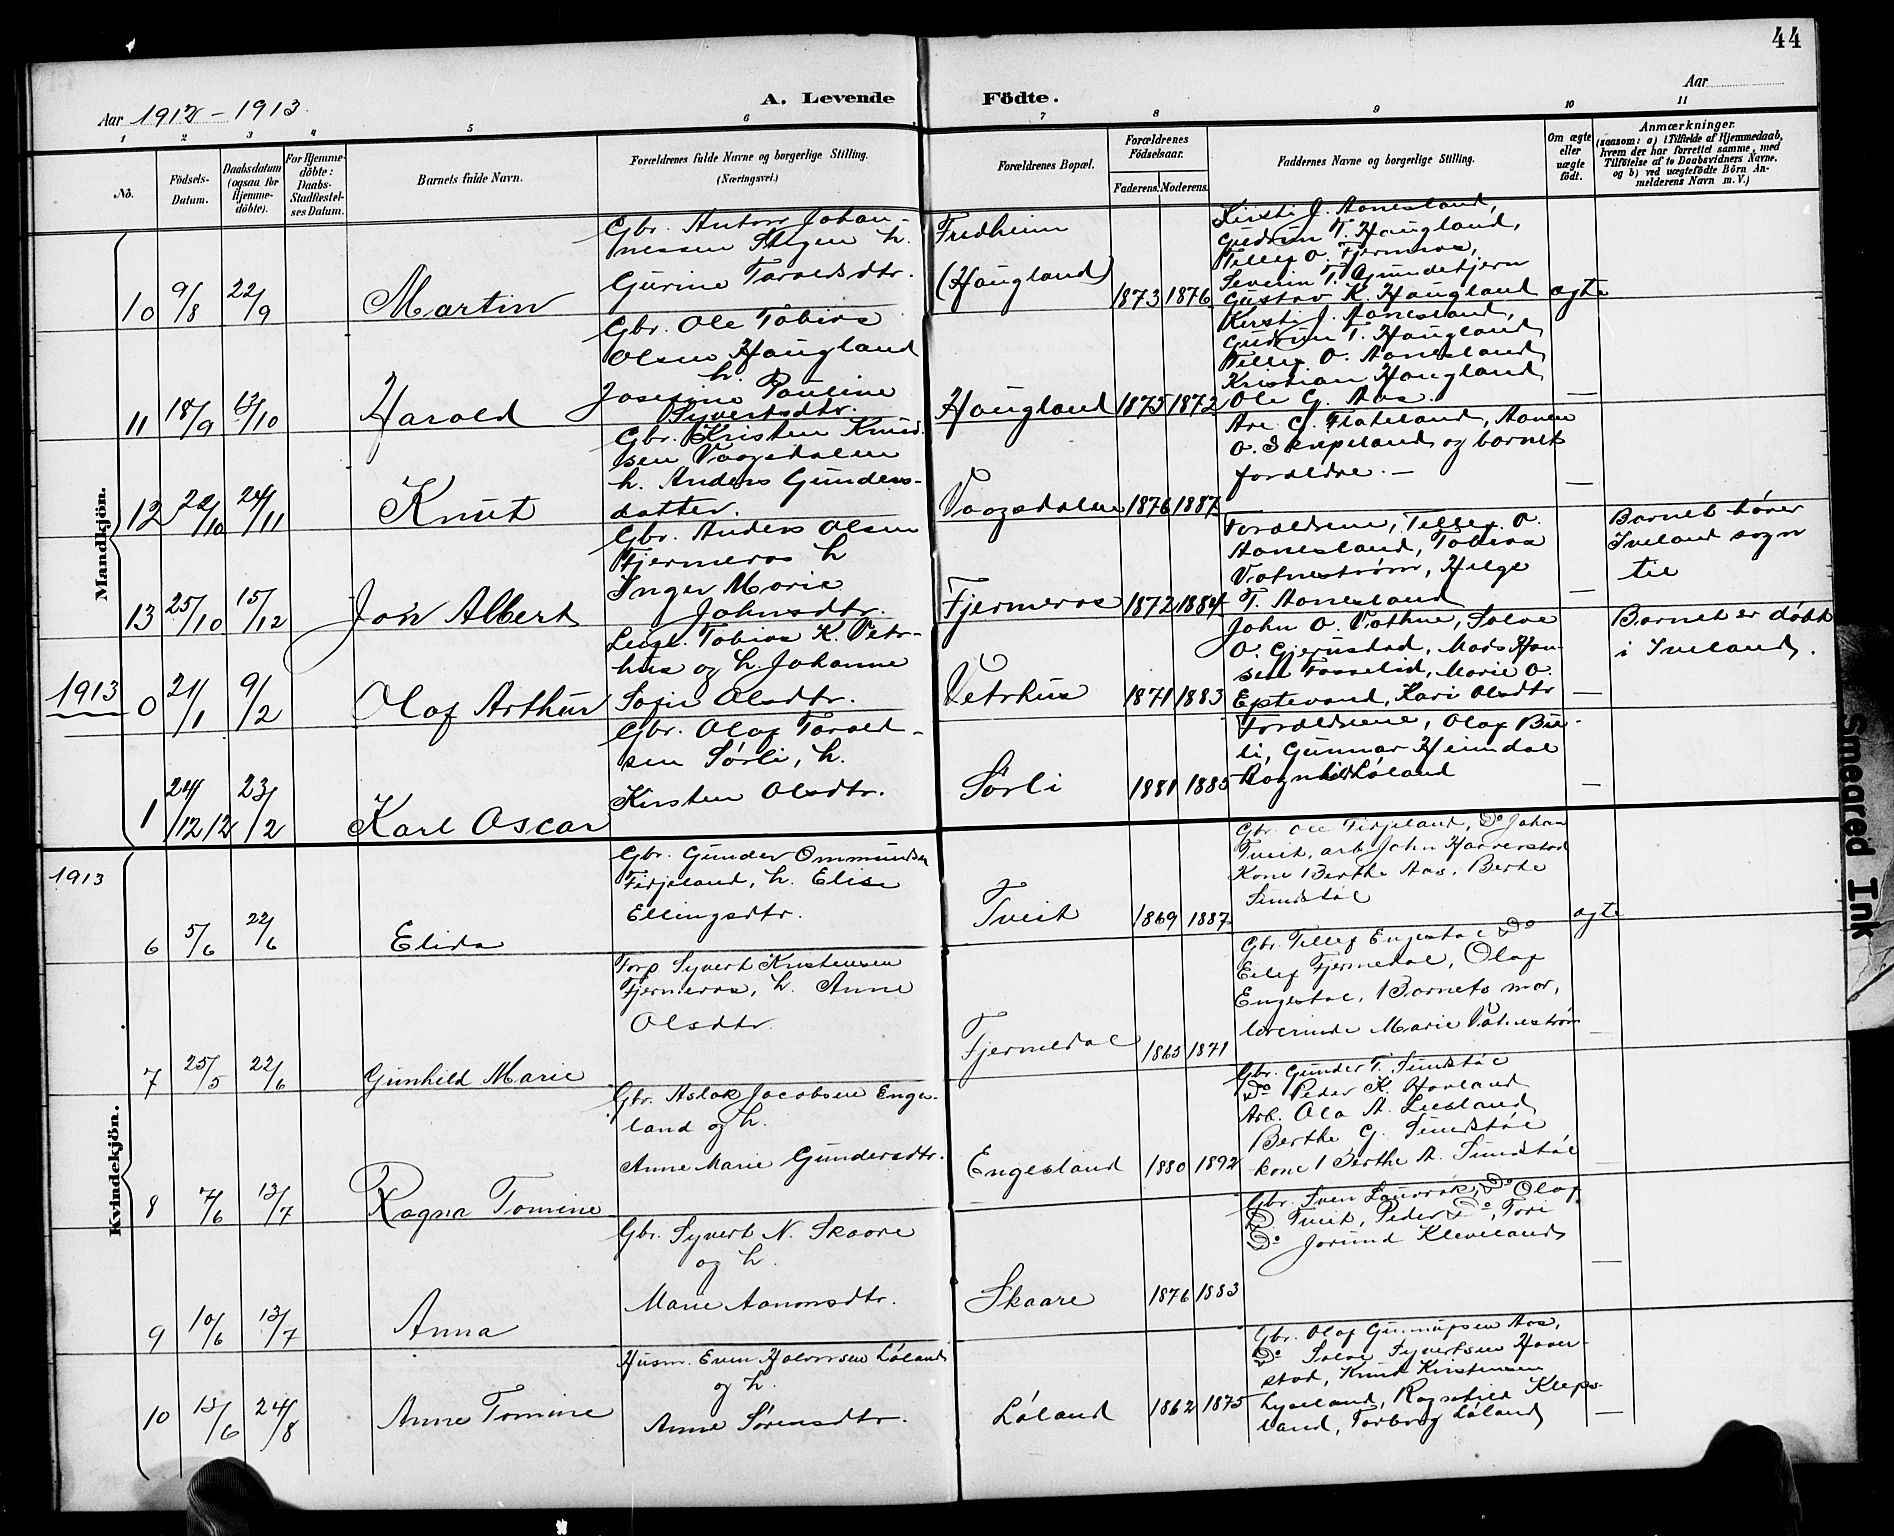 44
Aar 1912 - 1913.
A. Levende Födte.
Aar
1 2 3 4 5 6 7 8 9 10 11
No.
Födsels-Datum.
Daabsdatum (ogsaa for Hjemme-döbte).
For Hjemme-döbte: Daabs-Stadfæstel-ses Datum.
Barnets fulde Navn.
Forældrenes fulde Navne og borgerlige Stilling. (Næringsvei.)
Forældrenes Bopæl.
Forældrenes Födselsaar.
Faderens. Moderens.
Faddernes Navne og borgerlige Stilling.
Om ægte eller uægte født.
Anmærkninger.
(saasom: a) i Tilfælde af Hjemmedaab, hvem der har forrettet samme, med Tilföielse af to Daabsvidners Navne. og b) ved uægtefödte Börn An-melderens Navn m. V.)
Mandkjön.
10 9/8 22/9 Martin
Gbr. Anton Johan-
nessen Skogen h.
Gurine Taraldsdtr.
Fredheim
(Haugland)
1873 1876
Kirsti J. Aanesland,
Gudrun T. Haugland,
Tellef O. Fjermeros,
Severin T. Gundetjern
Gustav K. Haugland
ægte
11 18/9 13/10 Harald
Gbr. Ole Tobias
Olsen Haugland
h.
Josefine Pauline
Syvertsdtr.
Haugland
1875 1872
Kirsti J. Aanesland,
Gudrun T. Haugland
Tellef O. Aanesland
Kristian Haugland
Ole G. Aas
—
12 22/10 24/11 Knut
Gbr. Kristen Knud-
sen Vaagsdalen
h. Anders Gunders-
datter.
Vaagsdalen
1876 1887
Are G. Flateland, Aanen
O. Skripeland og barnets
foraldre. —
—
13 25/10 15/12 Jon Albert
Gbr. Anders Olsen
Fjermeros h
Inger Marie
Johnsdtr.
Fjermeros
1872 1884
Foraldrene, Tellef O.
Aanesland, Tobias
Vatnestrøm, Helge
T. Aanesland
—
Barnet hører
Iveland sogn
til
1913
0 21/1 9/2 Olaf Arthur
Leigl. Tobias K. Vetr-
hus og h. Johanne
Sofie Olsdtr.
Vetrhus
1871 1883
John O. Vathne, Salve
O. Gjerustad, Mads Han-
sen Fosselid, Marie O.
Eptevand, Kari Olsdtr
—
Barnet er døbt
i Iveland.
1 24/12 12 23/2 Karl Oscar
Gbr. Olaf Tarald-
sen Sørli, h.
Kirsten Olsdtr.
Sørli
1881 1885
Foraldrene, Olaf Bie-
li, Gunnar Heimdal
Ragnhild Løland
—
Kvindekjön.
1913
6 5/6 22/6 Elida
Gbr. Gunder Ommundsen
Fidjeland, h. Elise
Ellingsdtr.
Tveit
1869 1887
Gbr. Ole Fidjeland, Do Johan
Tveit, arb John Haverstad
Kone Berthe Aas, Berte
Sundstøl
ægte
7 25/5 22/6 Gunhild Marie
Forp Syvert Kristensen
Fjermeros, h. Anne
Olsdtr.
Fjermedal
1865 1871
Gbr. Tellef Engestøl Do
Eilef Fjermedal, Olaf
Engestøl, Barnets mor,
lærerinde Marie Vatnestrøm
—
8 7/6 13/7 Ragna Tomine
Gbr. Aslak Jacobsen Enges-
land og h.
Anne Marie Gundersdtr.
Engesland
1880 1892
Gbr. Gunder T. Sundstøl
Do Peder K. Hovland
Arb. Ola A. Liesland
Berthe G. Sundstøl
kone Berthe A. Sundstøl
9 10/6 13/7 Anna
Gbr. Syvert N. Skaare
og h.
Marie Aanonsdtr.
Skaare
1876 1883
Gbr. Sven Lauvrak, Do Olaf
Tveit, Peder Do, Tori
Do Jorund Kleveland
—
10 15/6 24/8 Anne Tomine
Husm. Even Halvorsen Løland
og h.
Anne Sørensdtr.
Løland
1862 1875
Gbr. Olaf Gunnufsen Aas,
Do Salve Syvertsen Haver-
stad, Knud Kristensen
Lyseland, Ragnhild Kleps-
land, Torborg Løland
—
Smeared Ink